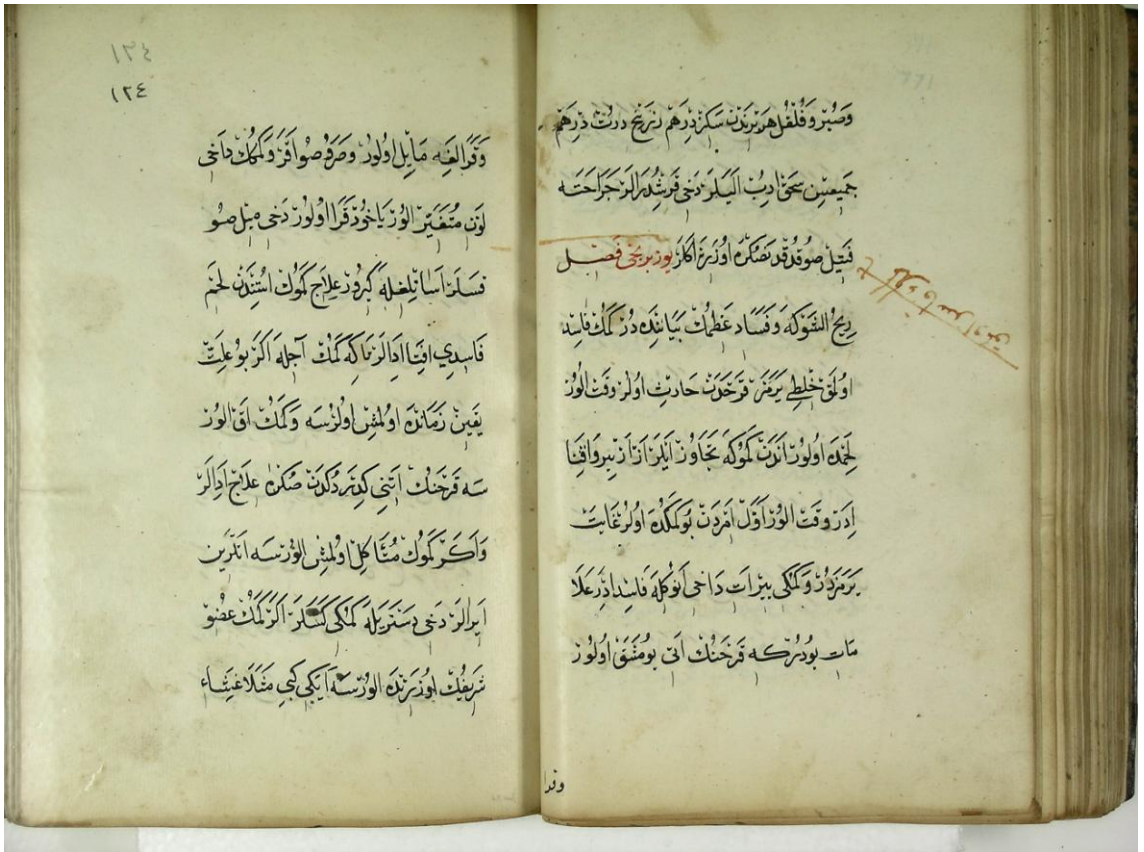 وَصَبِرْ وَفُلْفُلْ هَرْ بِرِنْدَنْ سَكِزْ دِرْهَمْ زِرْنِيخْ دُرْتْ دِرْهَمْ
جَمِيعْسِنْ سَحَقْ ادِبْ الَيَلَرْ دَخِى قَرِشْدُرَالَرْ جَرَاحَتَه
فَتِيلْ صُوقْدُقْدَنْصُكْرَه اوُزَرَه اَكَلَرْ يوز برنجى فَصِلْ
رِيحُ الشَوْكَه وَفَسَادِ عَظْمُكْ بَيَانِنْدَه دُرْ كَمُكْ فَاسِدْ
اوُلْمَقْ خِلْطِى يَرَمَزْ قَرْحَدَنْ حَادِثْ اوُلُرْ وَقْتْ الوُرْ
لَحْمْدَه اوُلوُرْ اَنْدَنْ كَمُوكَه تَجَاوُزْ اَيْلَرْ اَزْ اَزْ يِيرْ وَافْنَا
اِدَرْ وَقْتْ الوُرْ اَوَّلْ اَمِرْدَنْ بُو كَمُكْدَه اوُلُرْ غَايَتْ
يَرَمَزْدُرْ وَكَمُكِى يِيرْ اتْ دَاخِى اَنُوكِلَه فَاسِدْ ادَرْ عَلَا
مَاتْ بُودُرْكِه قَرْحَنُكْ اَتِى يُومُشَقْ اوُلوُرْ
وقرا
١٣٤
١٢٤
وَقَرَالِغَه مَايِلْ اوُلوُرْ وَصَرُو صُو اقَرْ وَكَمُكْ دَاخِى
لَوْنِ مُتَغَيِّرْ الوُرْ يَاخُودْ قَرَا اوُلوُرْ دَخِى مِيلْ صُو
قْسَلَرْ اَسَانْلِغِلَه كِيرُورْ عِلَاجْ كَمُوكْ اسْتِنْدَنْ لَحْمِ
فَاسِدِى افْنَا ادَالَرْ تَاكِه كَمُكْ آچِلَه اَكَرْ بُو عِلَّتْ
يَقِينْ زَمَانْدَه اوُلْمِشْ اوُلُرْسَه وَكَمُكْ اقْ الوُرْ
سَه قَرْحَنُكْ اتْنِى كِدَرْدُكْدَنْ صُكْرَه عِلَاجْ ادَالَرْ
وَاَكَرْ كَمُوكْ مُتَاكِلْ اوُلْمِشْ الوُرْسَه انْلَرِينْ
اَيِرَالَرْ دَخِى دَسْتَرَيلَه كَمُكِى كَسَلَرْ اَكَرْ كَمُكْ عُضْوِ
شَرِيفُكْ اوُزَرِنْدَه الوُرْسَه اَيَكِى كِبِى مَثَلَا غِشَاءِ